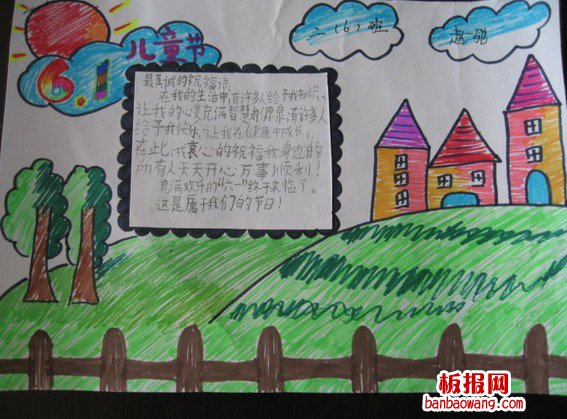 三（6）班
6.1
儿童节
最真诚的祝福语
在我的生活中,有许多人给予我知识、
让我的心灵充满智慧的源泉,有许多人
给予我快乐,让我在健康中成长,
在此,我衷心的祝福我身边的
所有人天天开心万事顺利！
充满欢乐的“六一”终于来临了。
这是属于我们的节日！
板报网
banbaowang.com